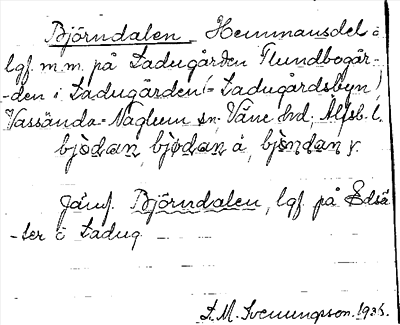 Björndalen Hemmansdel o
lgf. m.m. på Ladugården Flundbogår-
-den i Ladugården (= Ladugårdsbyn)
Vassända-Naglum sn, Väne hd, Älfsb. l.
bjödan, bjödan å, bjöndan y.
Jämf. Björndalen, lgf. på Edsä
-ter i Ladug
A.M. Svenungsson. 1935.